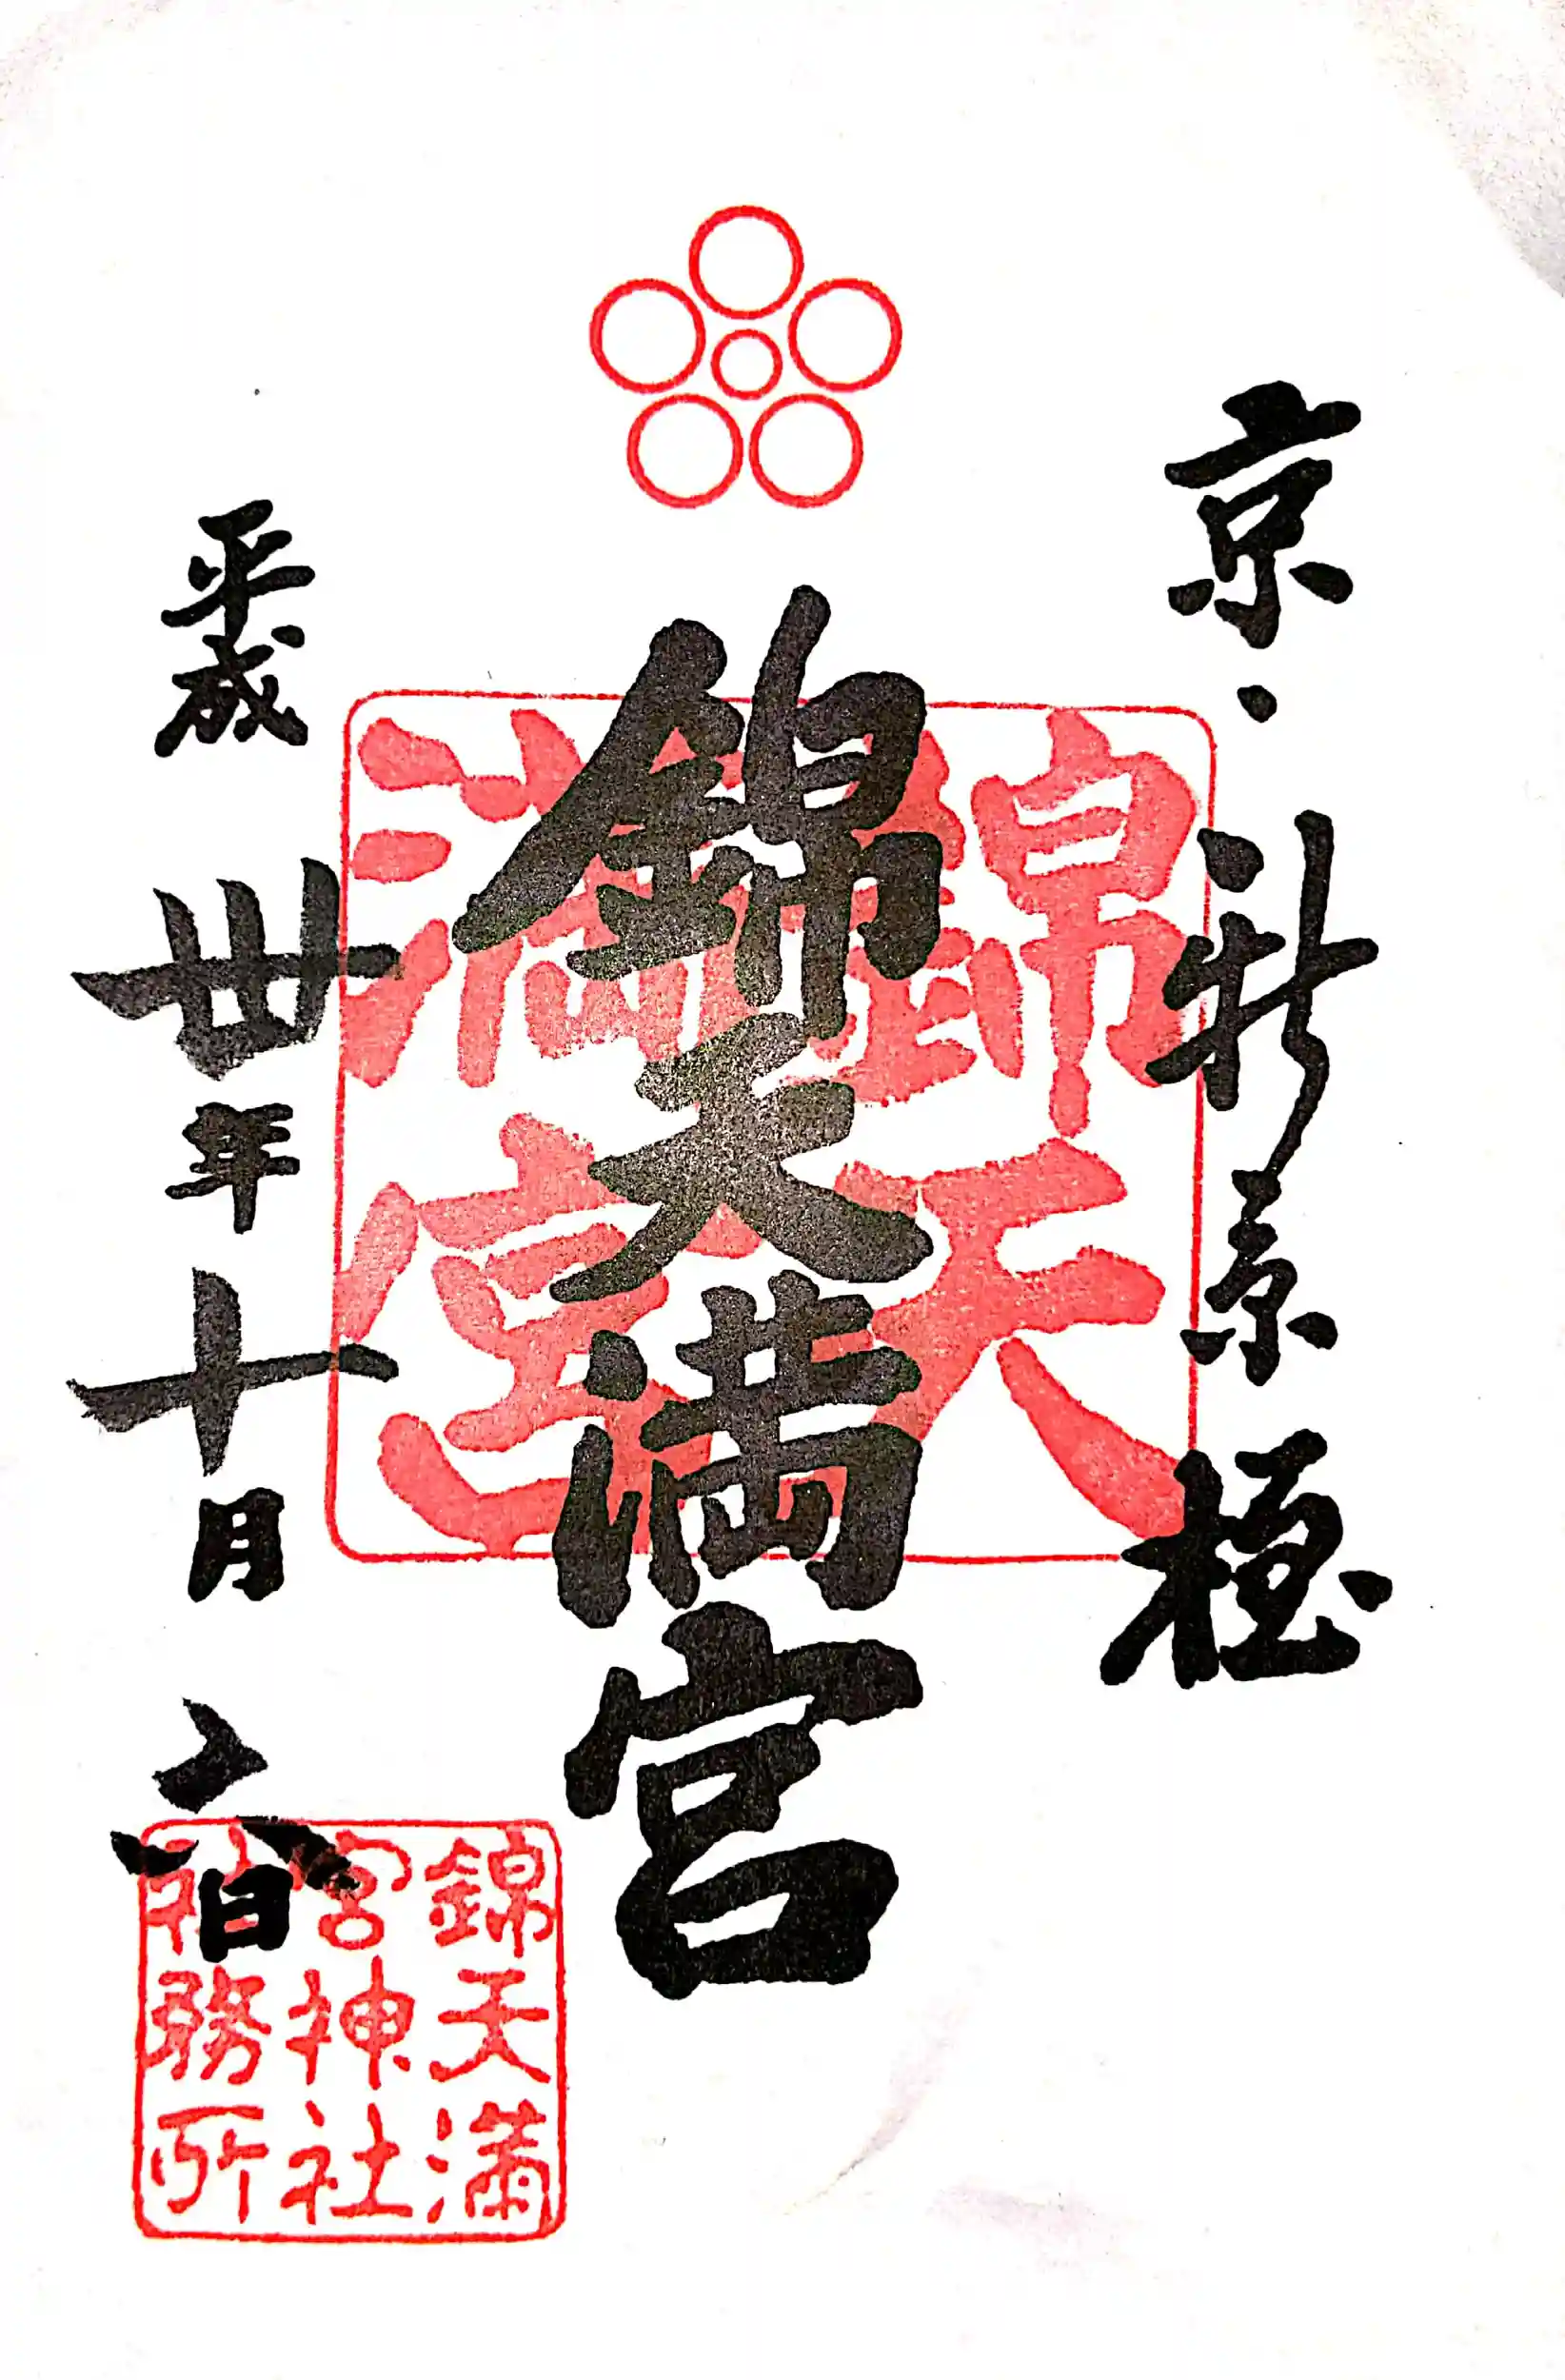 京・新京極
錦天満宮
錦天満宮
平成卅年十月六日
錦天満
宮神社
社務所